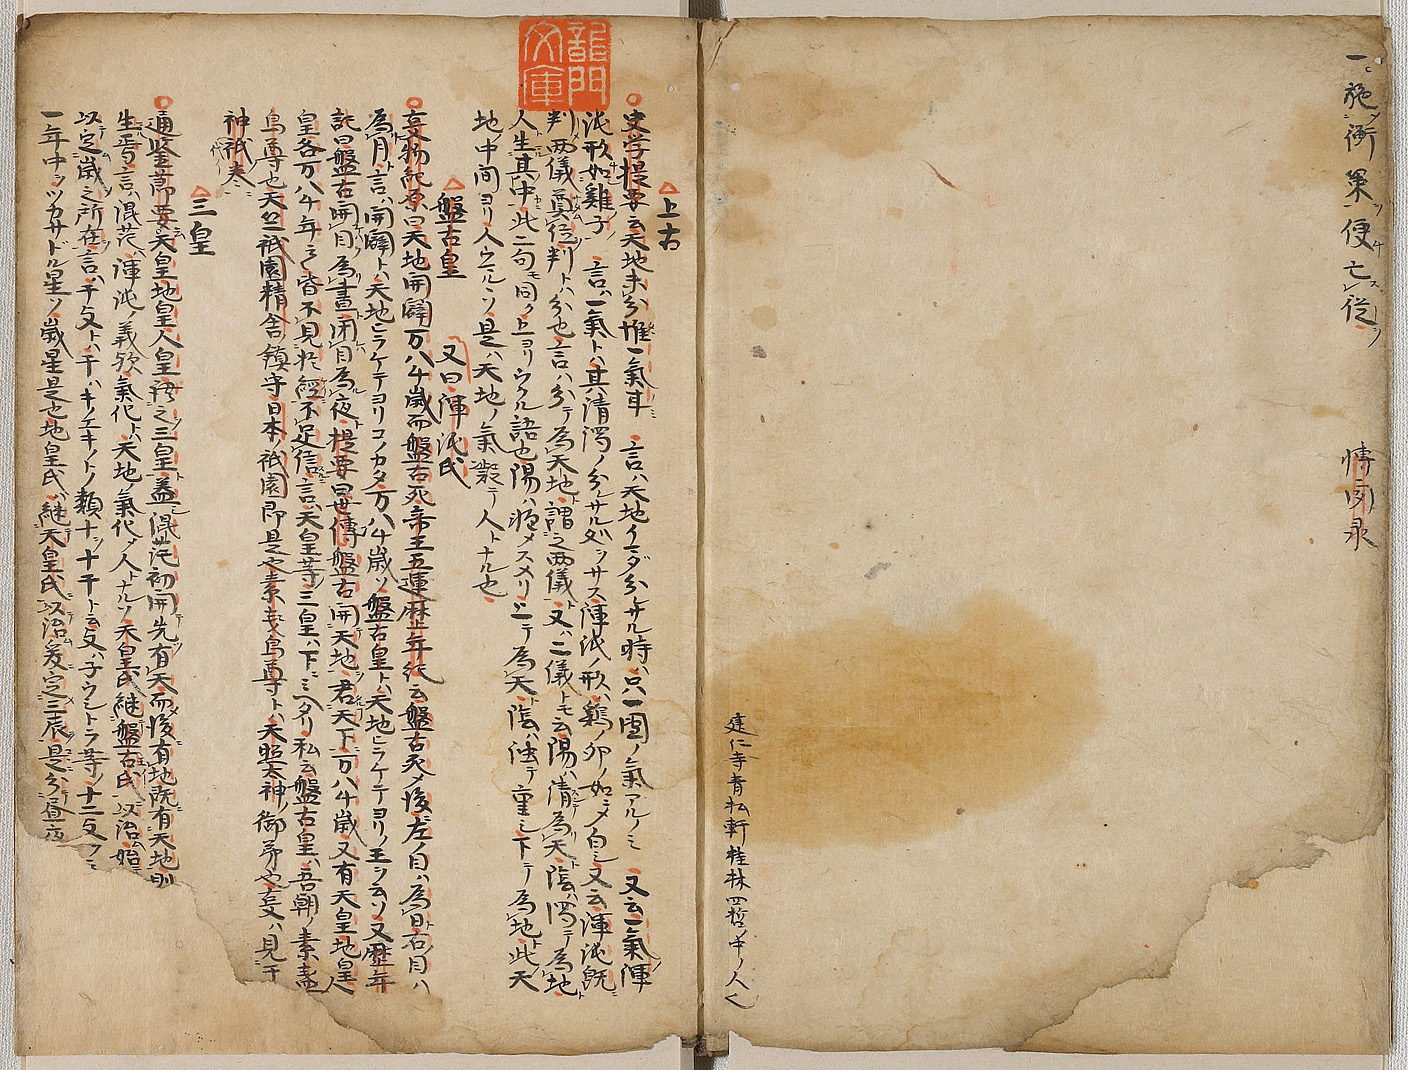 一施術果便亡従
建仁寺青松軒桂林四哲ノ中ノ人也
龍門文庫
上古
史学提要云天地未分惟一氣耳 言ハ天地イマダ分レサル時ハ只一団ノ氣アルノミ 又云一氣渾
沌形如雞子 言ハ一氣トハ其清濁ノ分レサル処ヲサス渾沌ノ形ハ鶏ノ卵ノ如シ 又云渾沌既
判両儀奠位判トハ分也言ハ分テ為天地謂之両儀又ハ二儀トモ云陽ハ清テ為天陰ハ濁テ為地
人生其中此二句モ同ク上ヨリウクル語也陽ハ上テ為天陰ハ濁テ重シ下テ為地此天
地ノ中間ヨリ人ウマルヽソ是ハ天地ノ氣聚テ人トナル也
盤古皇 又曰渾沌氏
事物紀原曰天地開闢万八千歳而盤古死帝王五運暦年紀云盤古死ノ後左ノ目ハ為日右目ハ
為月言ハ開闢トハ天地ヒラケテヨリコノカタ万八千歳ソ盤古皇トハ天地ヒラケテヨリノ王ヲ云ソ又歴年
記曰盤古開目為晝閉目為夜提要曰世傳盤古開天地君天下一万八千歳又有天皇地皇人
皇各万八千年云々皆不見於經不足信言ハ天皇等ノ三皇ハ下ニミヘタリ私云盤古皇ハ吾朝ノ素盞
烏尊也天竺祇園精舎ノ鎮守日本ノ祇園即是也素盞烏尊トハ天照大神ノ御弟也事ハ見于
神祇卷
三皇
通鑒節要天皇地皇人皇謂之三皇盖混茫初開先有天而後有地既有天地則
生焉言ハ混茫ハ渾沌ノ義欤氣化トハ天地ノ氣化〆人トナルソ天皇氏継盤古氏以治始
以定歳之所在言ハ干支トハ干ハキノエキノトノ類十ヲ十干ト云支ハ子ウシトラ等ノ十二支ヲ
一年中ヲツカサドル星ソ歳星是也地皇氏ハ継天皇氏以治爰定三辰是分昼夜